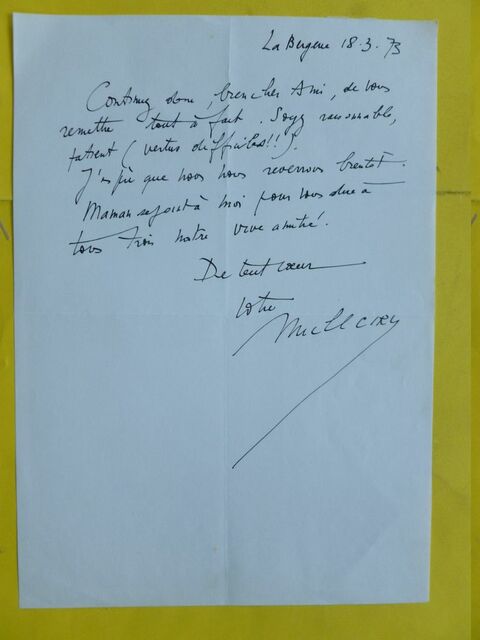 La Bergerie 18.3.73
Continuez donc, bien cher Ami, de vous
remettre tout à fait. Soyez raisonnable,
patient (vertus difficiles!!).
J'espère que nous nous reverrons bientôt.
Maman se joint à moi pour vous dire à
tous trois notre vive amitié.
De tout cœur
Votre
Michel CIRY